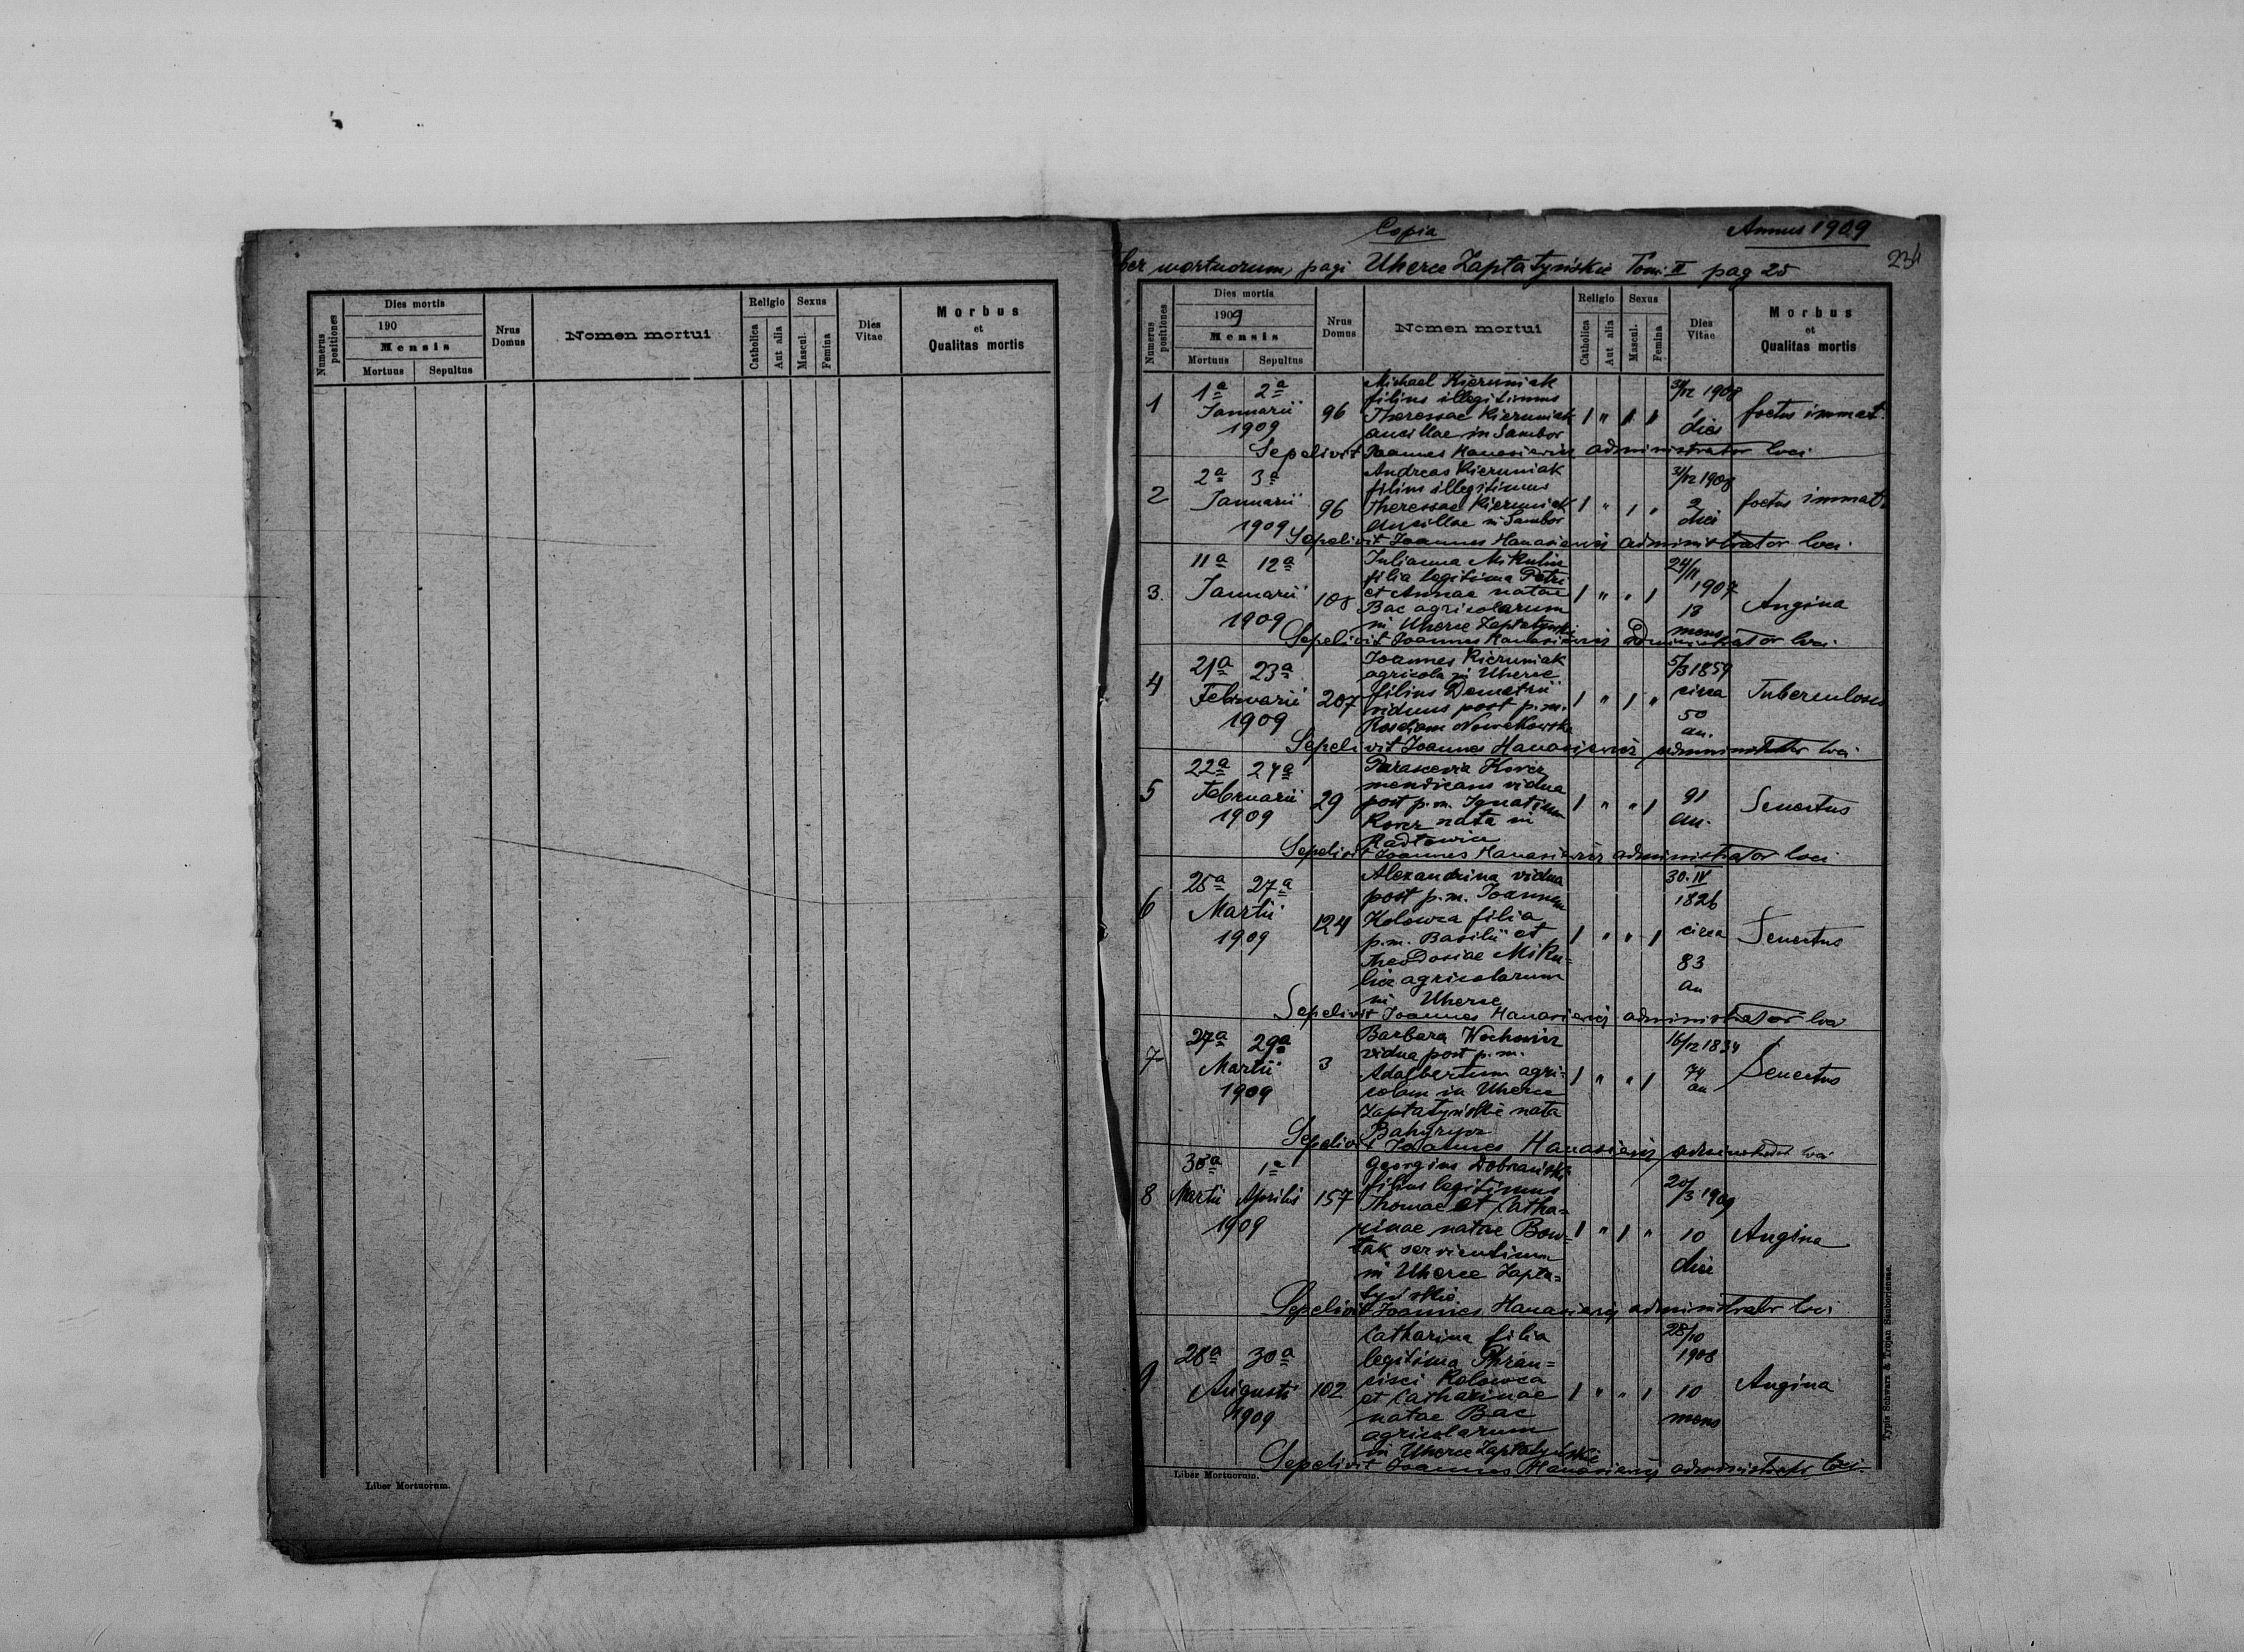 Numerus positiones
Dies mortis
190
Mensis
Mortuus Sepultus
Nrus Domus
Nomen mortui
Religio
Catholica
Aut alia
Sexus
Mascul.
Femina
Dies Vitae
Morbus
et
Qualitas mortis
Liber Mortuorum.
Copia
Annus 1909
ber mortuorum, pagi Uherce Zapłatyńskie Tom. II pag 25
234
Numerus positiones
Dies mortis
1909
Mensis
Mortuus Sepultus
Nrus Domus
Nomen mortui
Religio
Catholica
Aut alia
Sexus
Mascul.
Femina
Dies Vitae
Morbus
et
Qualitas mortis
1
1a 2a
Januarii
1909
96
Michael Kieruniak
filius illegitimus
Theressae Kieruniak
ancillae in Sambor
31/12 1908
1
dies
foetus immat.
Sepelivit Joannes Hanasiewicz administrator loci
2
2a 3a
Januarii
1909
96
Andreas Kieruniak
filius illegitimus
Theressae Kieruniak
ancillae in Sambor
31/12 1908
2
dies
foetus immat.
Sepelivit Joannes Hanasiewicz administrator loci
3.
11a 12a
Januarii
1909
108
Julianna Mikulicz
filia legitima Petri
et Annae natae
Bac agricolarum
in Uherce Zapłatyńskie
24/11
1907
13
mens
Angina
Sepelivit Joannes Hanasiewicz administrator loci
4
21a 23a
Februarii
1909
207
Joannes Kieruniak
agricola in Uherce
filius Demetrii
viduus post p.m.
5/3 1859
circa
50
an.
Tuberculosis
Sepelivit Joannes Hanasiewicz administrator loci
5
22a 24a
Februarii
1909
29
Parascevia
mendicans vidua
post p.m. Ignatium
nata in
Radłowice
91
an.
Senectus
Sepelivit Joannes Hanasiewicz administrator loci
6
25a 27a
Martii
1909
124
Alexandrina vidua
post p.m. Joannem
Holowca filia
p.m. Basilii et
Theodosiae Miku=
licz agricolarum
in Uherce
30.IV
1826
circa
83
an
Senectus
Sepelivit Joannes Hanasiewicz administrator loci
7
27a 29a
Martii
1909
3
Barbara
vidua post p.m.
Adalbertum agri=
colam in Uherce
Zapłatyńskie nata
16/12 1834
74
an
Senectus
Sepelivit Joannes Hanasiewicz administrator loci
8
30a 1a
Martii Aprilis
1909
157
Georgius Dobrański
filius legitimus
Thomae et Catha=
rinae natae Bow=
tak servientium
in Uherce Zapła=
tyńskie
20/3 1909
10
dies
Angina
Sepelivit Joannes Hanasiewicz administrator loci
9
28a 30a
Augusti
1909
102
Catharina filia
legitima Phran=
cisci Holowca
et Catharinae
natae Bac
agricolarum
in Uherce Zapłatyńskie
28/10
1908
10
mens
Angina
Sepelivit Joannes Hanasiewicz administrator loci.
Liber Mortuorum.
Typis Schwarz & Trojan Samboriensae.